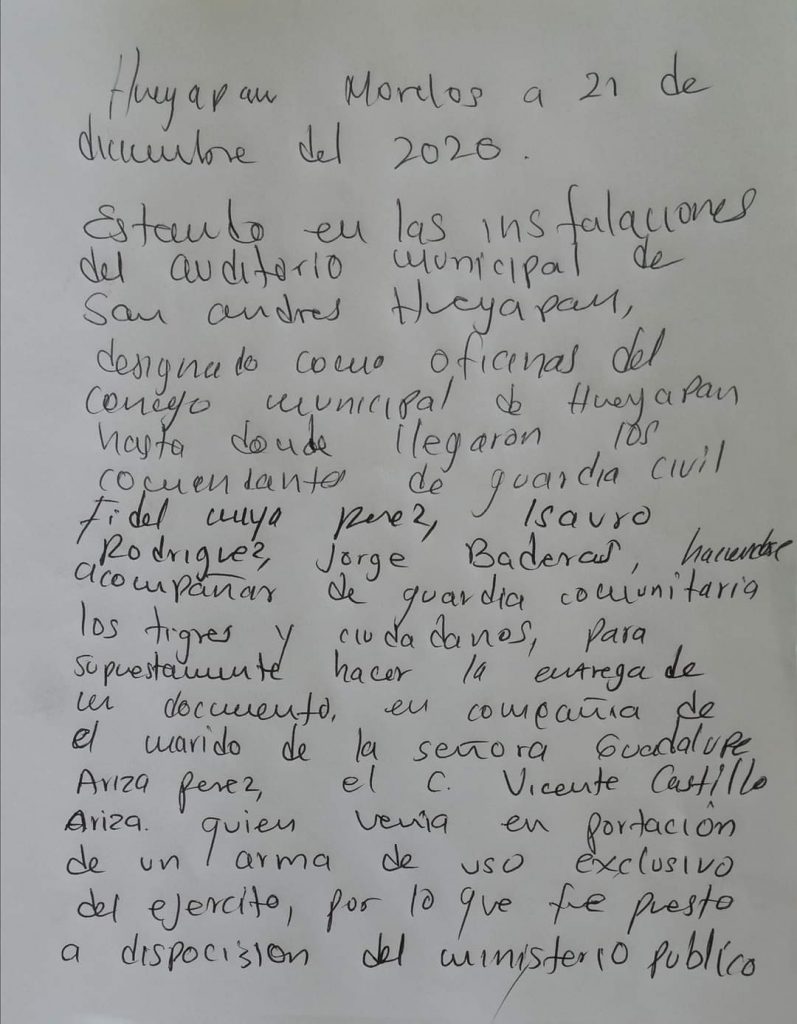 Hueyapan Morelos a 21 de
diciembre del 2020.
Estando en las instalaciones
del auditorio municipal de
San andres Hueyapan,
designado como oficinas del
concejo municipal de Hueyapan
hasta donde llegaron los
comendante de guardia civil
Fidel muya perez, Isauro
Rodriguez, Jorge Baderas, haciendose
acompañar de guardia comunitaria
los tigres y ciudadanos, para
supuestamente hacer la entrega de
un documento, en compañia de
el marido de la señora Guadalupe
Ariza perez, el C. Vicente Castillo
Ariza. quien venia en portación
de un arma de uso exclusivo
del ejercito, por lo que fue puesto
a dispocision del ministerio publico